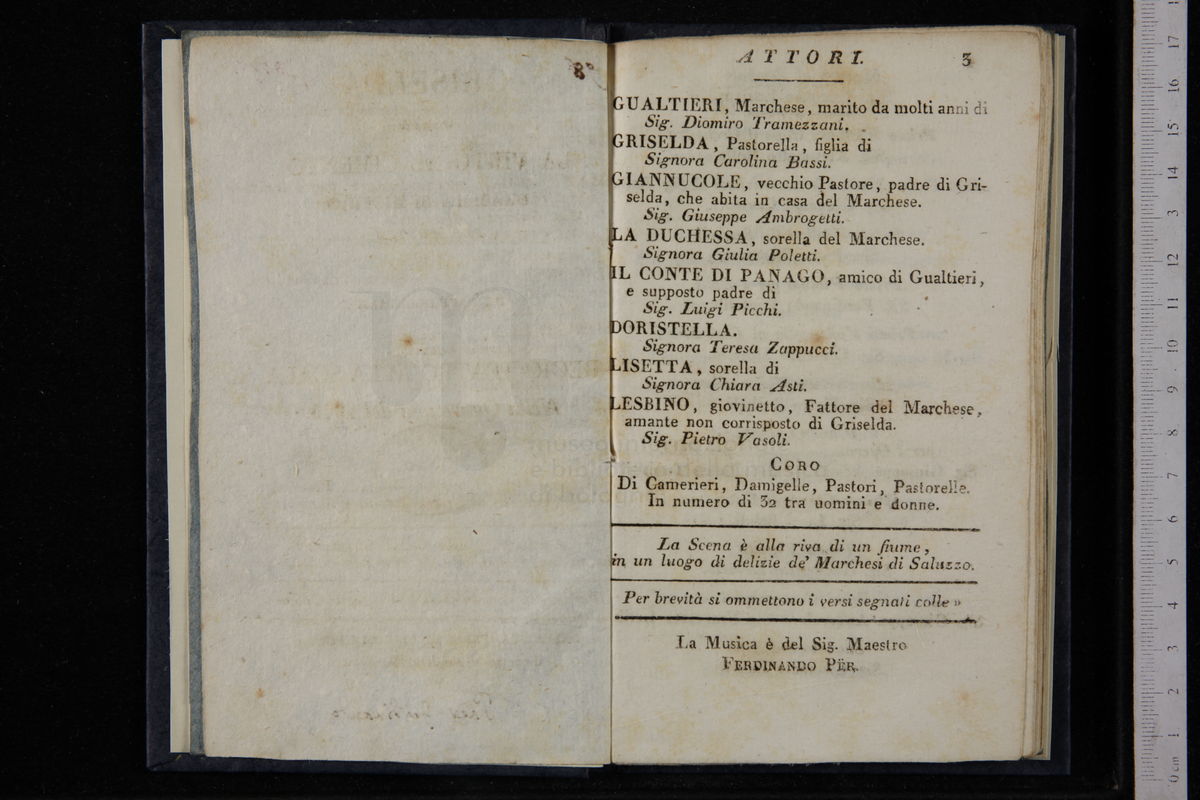 8°
ATTORI. 3
GUALTIERI, Marchese, marito da molti anni di
Sig. Diomiro Tramezzani.
GRISELDA, Pastorella, figlia di
Signora Carolina Bassi.
GIANNUCOLE, vecchio Pastore, padre di Gri-
selda, che abita in casa del Marchese.
Sig. Giuseppe Ambrogetti.
LA DUCHESSA, sorella del Marchese.
Signora Giulia Poletti.
IL CONTE DI PANAGO, amico di Gualtieri,
e supposto padre di
Sig. Luigi Picchi.
DORISTELLA.
Signora Teresa Zappucci.
LISETTA, sorella di
Signora Chiara Asti.
LESBINO, giovinetto, Fattore del Marchese,
amante non corrisposto di Griselda.
Sig. Pietro Vasoli.
CORO
Di Camerieri, Damigelle, Pastori, Pastorelle.
In numero di 32 tra uomini e donne.
La Scena è alla riva di un fiume,
in un luogo di delizie de' Marchesi di Saluzzo.
Per brevità si ommettono i versi segnati colle »
La Musica è del Sig. Maestro
FERDINANDO PËR.
0 cm 1 2 3 4 5 6 7 8 9 10 11 12 3 14 15 16 17